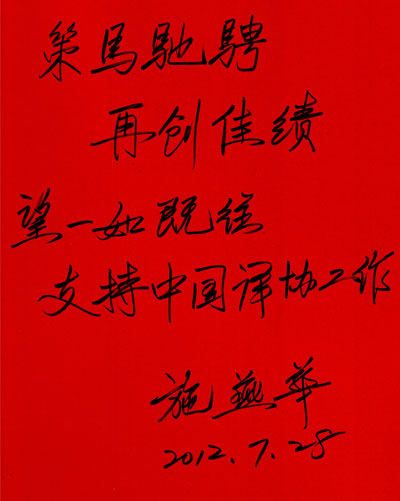 策馬馳騁
再创佳绩
望一如既往
支持中国译协工作
施燕华
2012.7.28